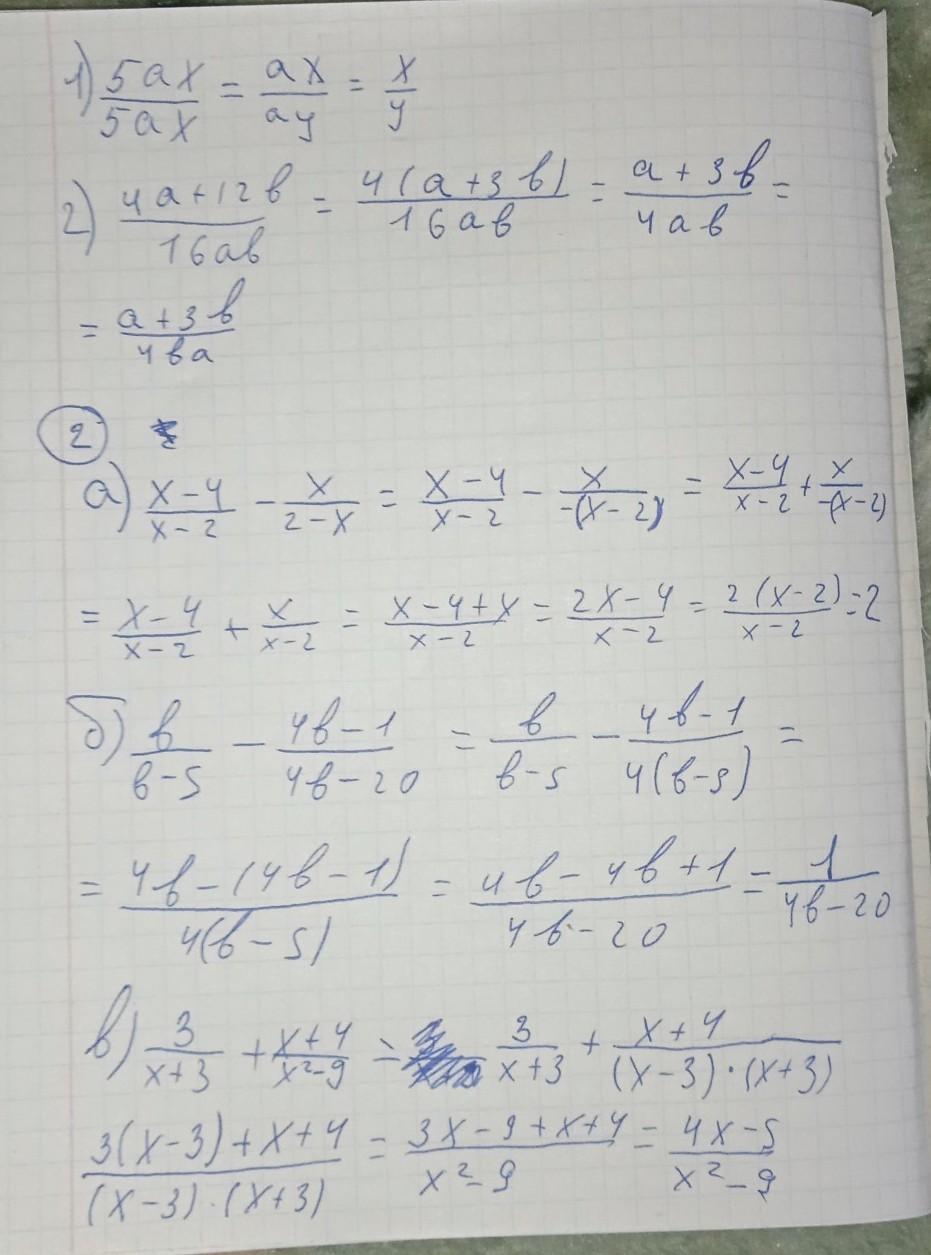 1) 5ax/5ax = ax/ay = x/y
2) 4a+12b/16ab = 4(a+3b)/16ab = a+3b/4ab =
= a+3b/4ba
2
а) x-4/x-2 - x/2-x = x-4/x-2 - x/-(x-2) = x-4/x-2 + x/-(x-2)
= x-4/x-2 + x/x-2 = x-4+x/x-2 = 2x-4/x-2 = 2(x-2)/x-2 = 2
б) b/b-5 - 4b-1/4b-20 = b/b-5 - 4b-1/4(b-5) =
= 4b-(4b-1)/4(b-5) = 4b-4b+1/4b-20 = 1/4b-20
в) 3/x+3 + x+4/x²-9 = 3/x+3 + x+4/(x-3)·(x+3)
3(x-3)+x+4/(x-3)·(x+3) = 3x-9+x+4/x²-9 = 4x-5/x²-9